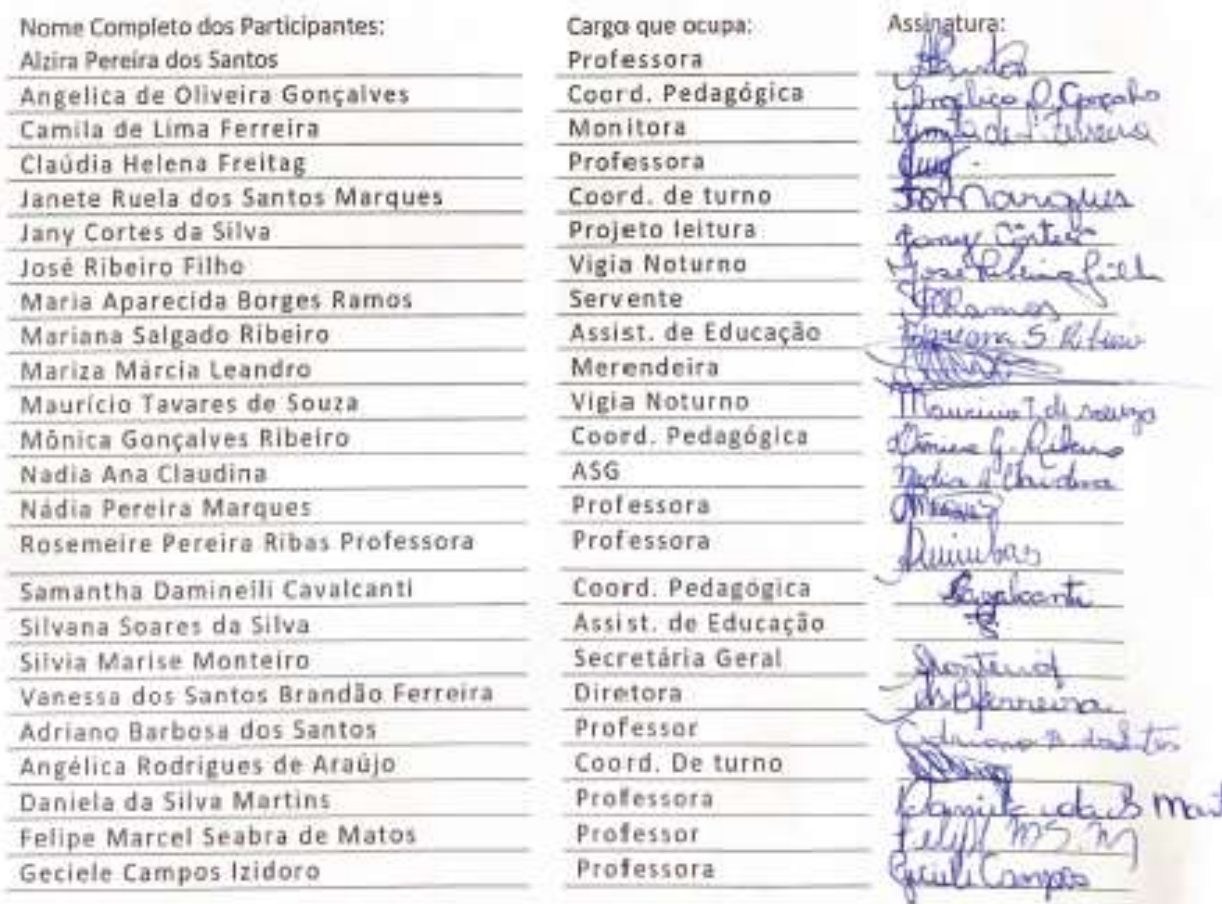 Nome Completo dos Participantes: Cargo que ocupa: Assinatura:
Alzira Pereira dos Santos Professora
Angelica de Oliveira Gonçalves Coord. Pedagógica Angélica O. Gonçalves
Camila de Lima Ferreira Monitora Camila de L. Ferreira
Claúdia Helena Freitag Professora
Janete Ruela dos Santos Marques Coord. de turno Marques
Jany Cortes da Silva Projeto leitura Jany Côrtes
José Ribeiro Filho Vigia Noturno José Ribeiro Filho
Maria Aparecida Borges Ramos Servente Ramos
Mariana Salgado Ribeiro Assist. de Educação Mariana S. Ribeiro
Mariza Márcia Leandro Merendeira
Maurício Tavares de Souza Vigia Noturno Mauricio T. de souza
Mônica Gonçalves Ribeiro Coord. Pedagógica Mônica G. Ribeiro
Nadia Ana Claudina ASG Nadia A Claudina
Nádia Pereira Marques Professora
Rosemeire Pereira Ribas Professora Professora
Samantha Daminelli Cavalcanti Coord. Pedagógica Cavalcanti
Silvana Soares da Silva Assist. de Educação
Silvia Marise Monteiro Secretária Geral Monteiro
Vanessa dos Santos Brandão Ferreira Diretora Ferreira
Adriano Barbosa dos Santos Professor Adriano B. dos Santos
Angélica Rodrigues de Araújo Coord. De turno
Daniela da Silva Martins Professora Daniela da S Mart
Felipe Marcel Seabra de Matos Professor Felipe M.S.M
Geciele Campos Izidoro Professora Geciele Campos